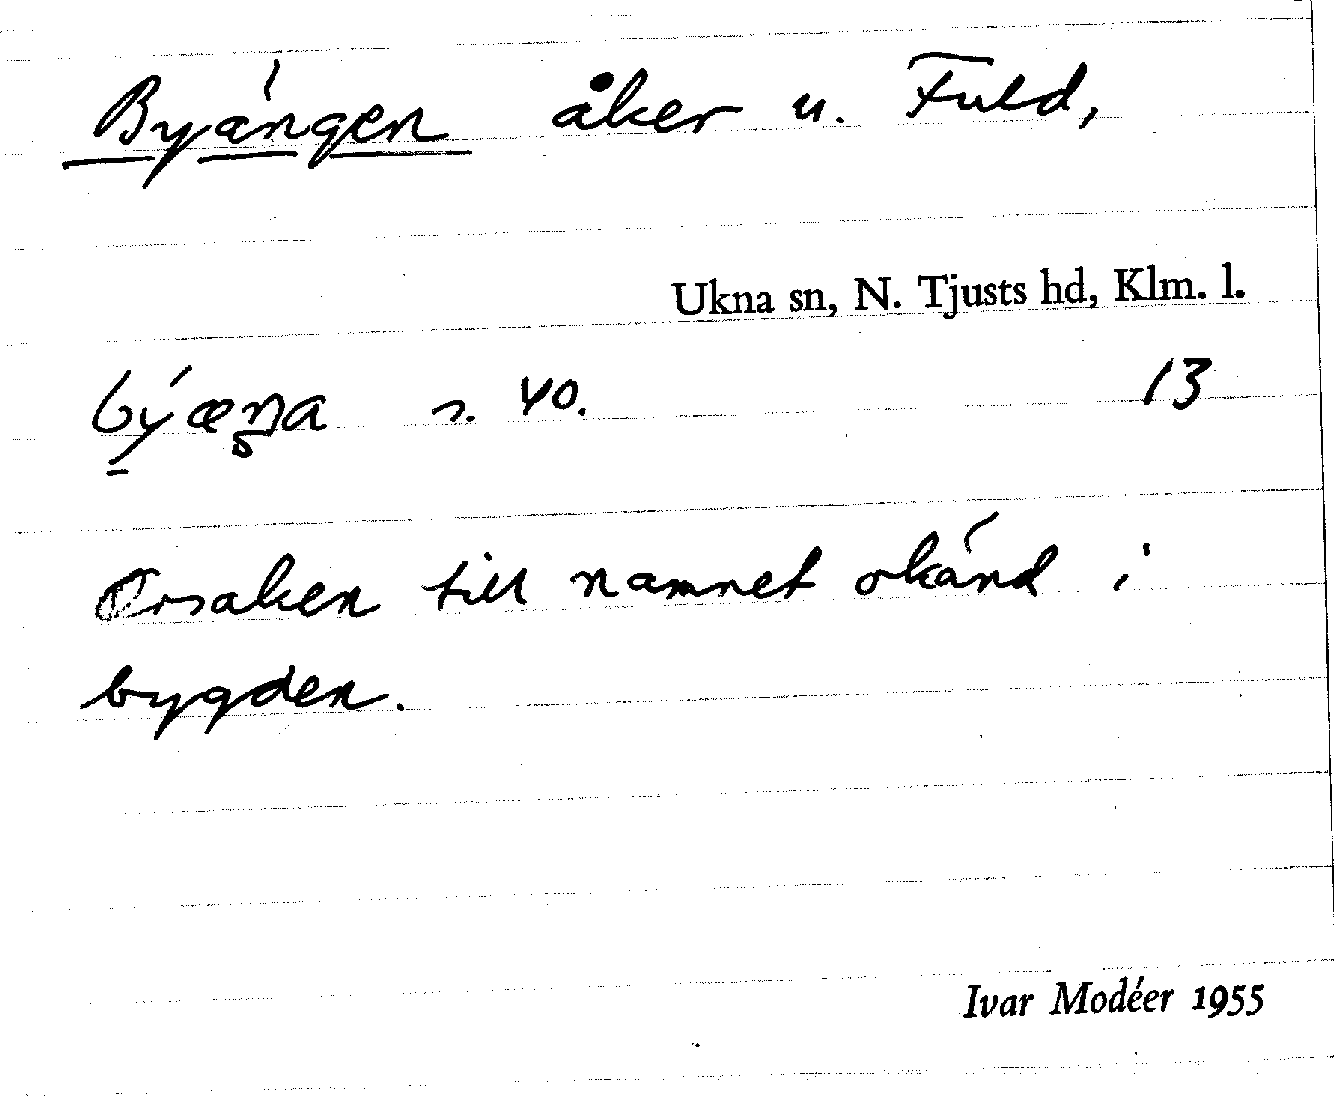 Byängen åker u. Fuld,
Ukna sn, N. Tjusts hd, Klm. l.
bý̱æŋa s. 40. 13
Orsaken till namnet okänd i
bygden.
Ivar Modéer 1955